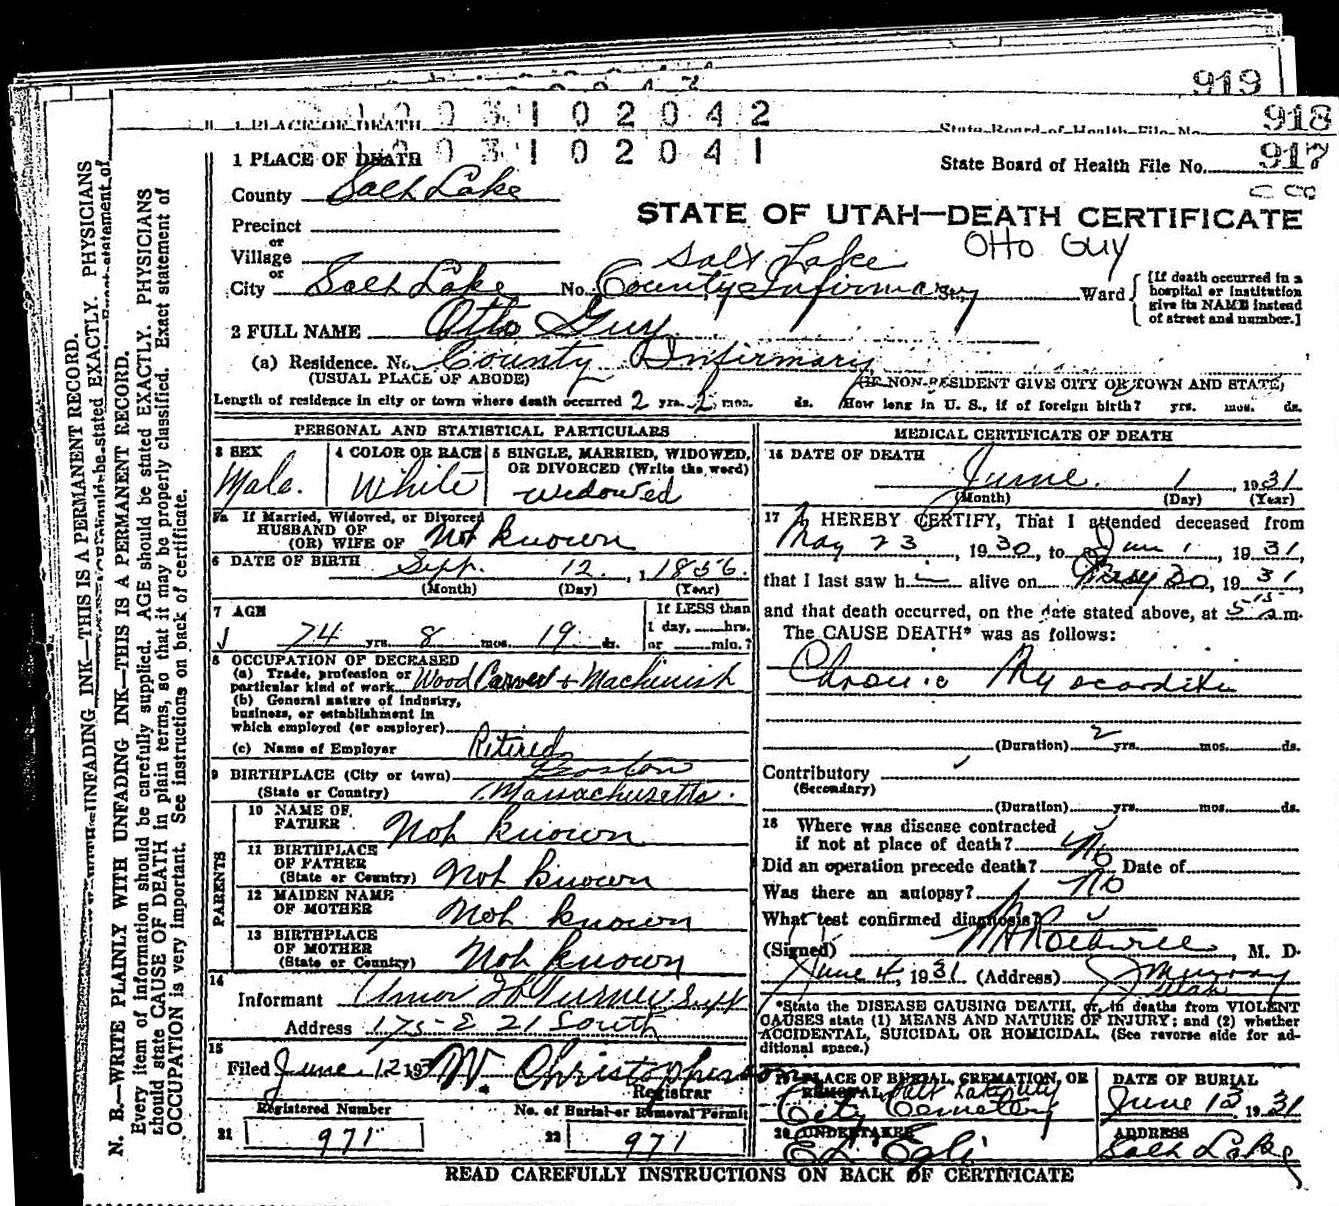 919
1 0 0 3 1 0 2 0 4 2
1 PLACE OF DEATH State Board of Health File No. 918
0 3 1 0 2 0 4 1
1 PLACE OF DEATH State Board of Health File No. 917
County Salt Lake
STATE OF UTAH—DEATH CERTIFICATE
Otto Guy
Precinct
or
Village
or
Salt Lake
City Salt Lake No. County Infirmary St., Ward
[If death occurred in a hospital or institution give its NAME instead of street and number.]
2 FULL NAME Otto Guy
(a) Residence. No. County Infirmary
(USUAL PLACE OF ABODE) (IF NON-RESIDENT GIVE CITY OR TOWN AND STATE)
Length of residence in city or town where death occurred 2 yrs. 2 mos. ds. How long in U. S., if of foreign birth? yrs. mos. ds.
PERSONAL AND STATISTICAL PARTICULARS
3 SEX Male.
4 COLOR OR RACE White
5 SINGLE, MARRIED, WIDOWED, OR DIVORCED (Write the word) widowed
5a If Married, Widowed, or Divorced
HUSBAND OF
(OR) WIFE OF Not known
6 DATE OF BIRTH Sept. 12, 1856.
(Month) (Day) (Year)
7 AGE
74 yrs. 8 mos. 19 ds.
If LESS than
1 day, hrs.
or min.?
8 OCCUPATION OF DECEASED
(a) Trade, profession or
particular kind of work Wood Carver + Machinist
(b) General nature of industry,
business, or establishment in
which employed (or employer)
(c) Name of Employer Retired
9 BIRTHPLACE (City or town) Boston
(State or Country) Massachusetts.
PARENTS
10 NAME OF
FATHER Not known
11 BIRTHPLACE
OF FATHER
(State or Country) Not known
12 MAIDEN NAME
OF MOTHER Not known
13 BIRTHPLACE
OF MOTHER
(State or Country) Not known
14
Informant Turner Supt
Address 175 E 21 South
15
Filed June 12 193 W. Christopherson
Registrar
Registered Number
21 971
No. of Burial or Removal Permit
22 971
MEDICAL CERTIFICATE OF DEATH
16 DATE OF DEATH
June 1, 1931
(Month) (Day) (Year)
17 I HEREBY CERTIFY, That I attended deceased from
May 23, 1930, to Jun 1, 1931,
that I last saw h alive on May 30, 1931,
and that death occurred, on the date stated above, at 5 15 a m.
The CAUSE DEATH* was as follows:
Chronic Myocarditis
(Duration) 2 yrs. mos. ds.
Contributory
(Secondary)
(Duration) yrs. mos. ds.
18 Where was disease contracted
if not at place of death?
Did an operation precede death? No Date of
Was there an autopsy? No
What test confirmed diagnosis?
(Signed) , M. D.
June 4, 1931 (Address) Murray
Utah
*State the DISEASE CAUSING DEATH, or, in deaths from VIOLENT
CAUSES state (1) MEANS AND NATURE OF INJURY; and (2) whether
ACCIDENTAL, SUICIDAL OR HOMICIDAL. (See reverse side for additional space.)
19 PLACE OF BURIAL, CREMATION, OR
REMOVAL Salt Lake City
City Cemetery
DATE OF BURIAL
June 13 1931
20 UNDERTAKER
Egli
ADDRESS
Salt Lake
READ CAREFULLY INSTRUCTIONS ON BACK OF CERTIFICATE
N. B.—WRITE PLAINLY WITH UNFADING INK—THIS IS A PERMANENT RECORD.
Every item of information should be carefully supplied. AGE should be stated EXACTLY. PHYSICIANS
should state CAUSE OF DEATH in plain terms, so that it may be properly classified. Exact statement of
OCCUPATION is very important. See instructions on back of certificate.
UNFADING INK—THIS IS A PERMANENT RECORD.
should be stated EXACTLY. PHYSICIANS
Exact statement of